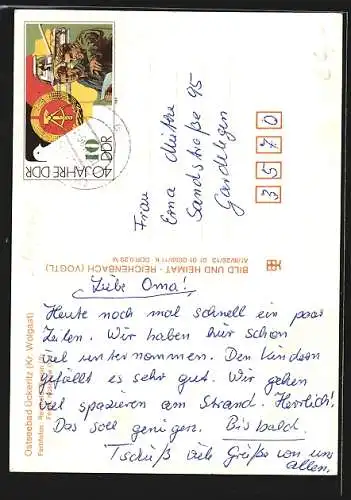 40 JAHRE DDR
10
DDR
Frau
Erna
Sandstraße 95
Gardelegen
3570
BILD UND HEIMAT · REICHENBACH (VOGTL)
Liebe Oma!
Heute noch mal schnell ein paar
Zeilen. Wir haben hier schon
viel unternommen. Den Kindern
gefällt es sehr gut. Wir gehen
viel spazieren am Strand. Herrlich!
Das soll genügen. Bis bald.
Tschüß viele Grüße von uns
allen.
Ostseebad Ückeritz (Kr. Wolgast)